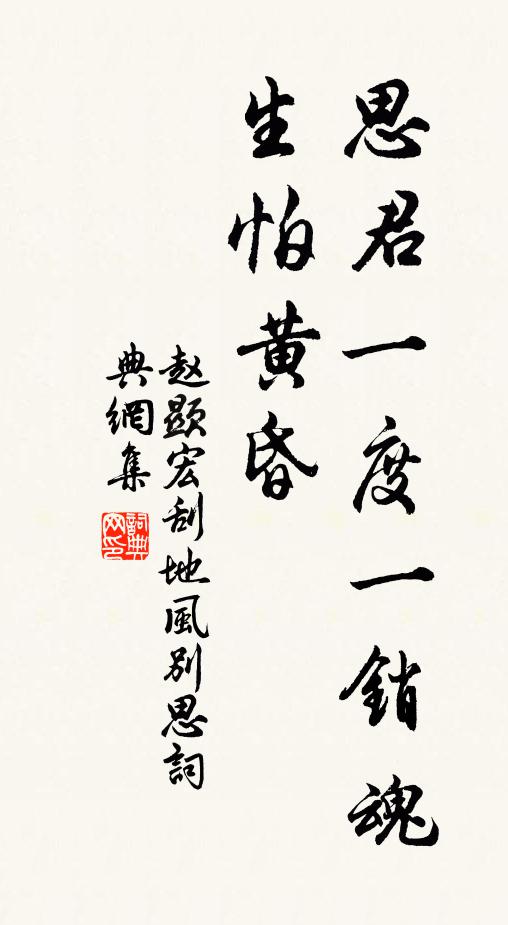 思君一度一銷魂
生怕黃昏
赵顯宏刮地風別思詞
典網集
詞典网印